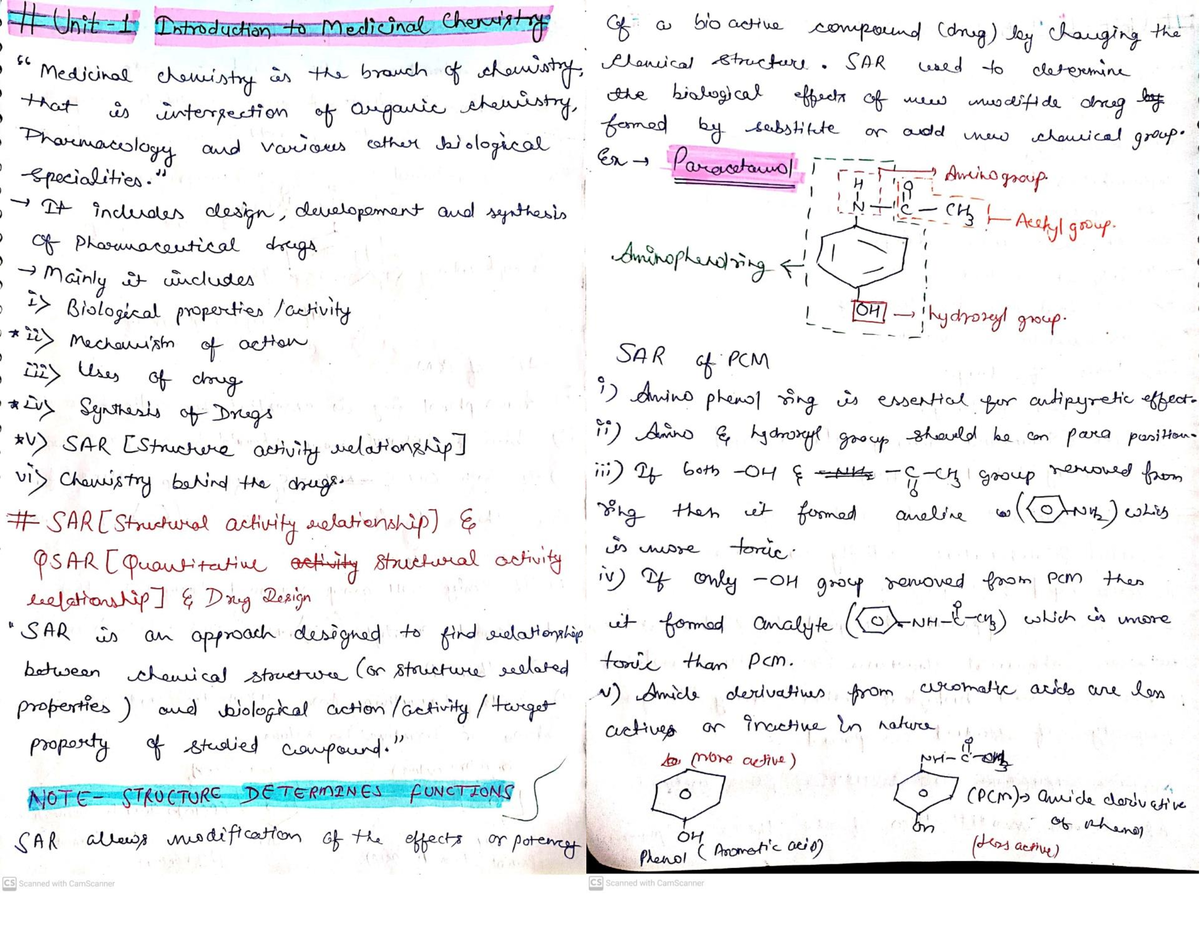 # Unit-1 Introduction to Medicinal Chemistry
"Medicinal chemistry is the branch of chemistry,
that is intersection of organic chemistry,
Pharmacology and various other biological
specialities."
→ It includes design, developement and synthesis
of Pharmaceutical drugs
→ Mainly it includes
i> Biological properties /activity
* ii> Mechanism of action
iii> Uses of drug
* iv> Synthesis of Drugs
*v> SAR [Structure activity relationship]
vi> Chemistry behind the drugs.
# SAR [Structural activity relationship] &
QSAR [Quantitative activity structural activity
relationship] & Drug Design
"SAR is an approach designed to find relationship
between chemical structure (or structure related
properties) and biological action /activity / target
property of studied compound."
NOTE- STRUCTURE DETERMINES FUNCTIONS
SAR allows modification of the effects or potency
CS Scanned with CamScanner
Of a bio active compound (drug) by changing the
chemical structure. SAR used to determine
the biological effects of new modifide drug by
formed by substitute or add new chemical group.
Ex → Paracetamol
→ Amino group
H O
N - C - CH3
- Acetyl group.
Aminophenol ring ←
OH → hydroxyl group.
SAR of PCM
i) Amino phenol ring is essential for antipyretic effect.
ii) Amino & hydroxyl group should be on para position.
iii) If both -OH & -NH2 -C-CH3 group removed from
O
ring then it formed aneline (O-NH2) which
is more toxic.
iv) If only -OH group removed from PCM then
it formed analyte (O-NH-C-CH3) which is more
O
toxic than PCM.
v) Amide derivatives from aromatic acids are less
actives or inactive in nature
(more active)
O
OH
Phenol (Aromatic acid)
O
NH-C-CH3
O
OH
(PCM)→ amide derivative
of phenol
(less active)
CS Scanned with CamScanner